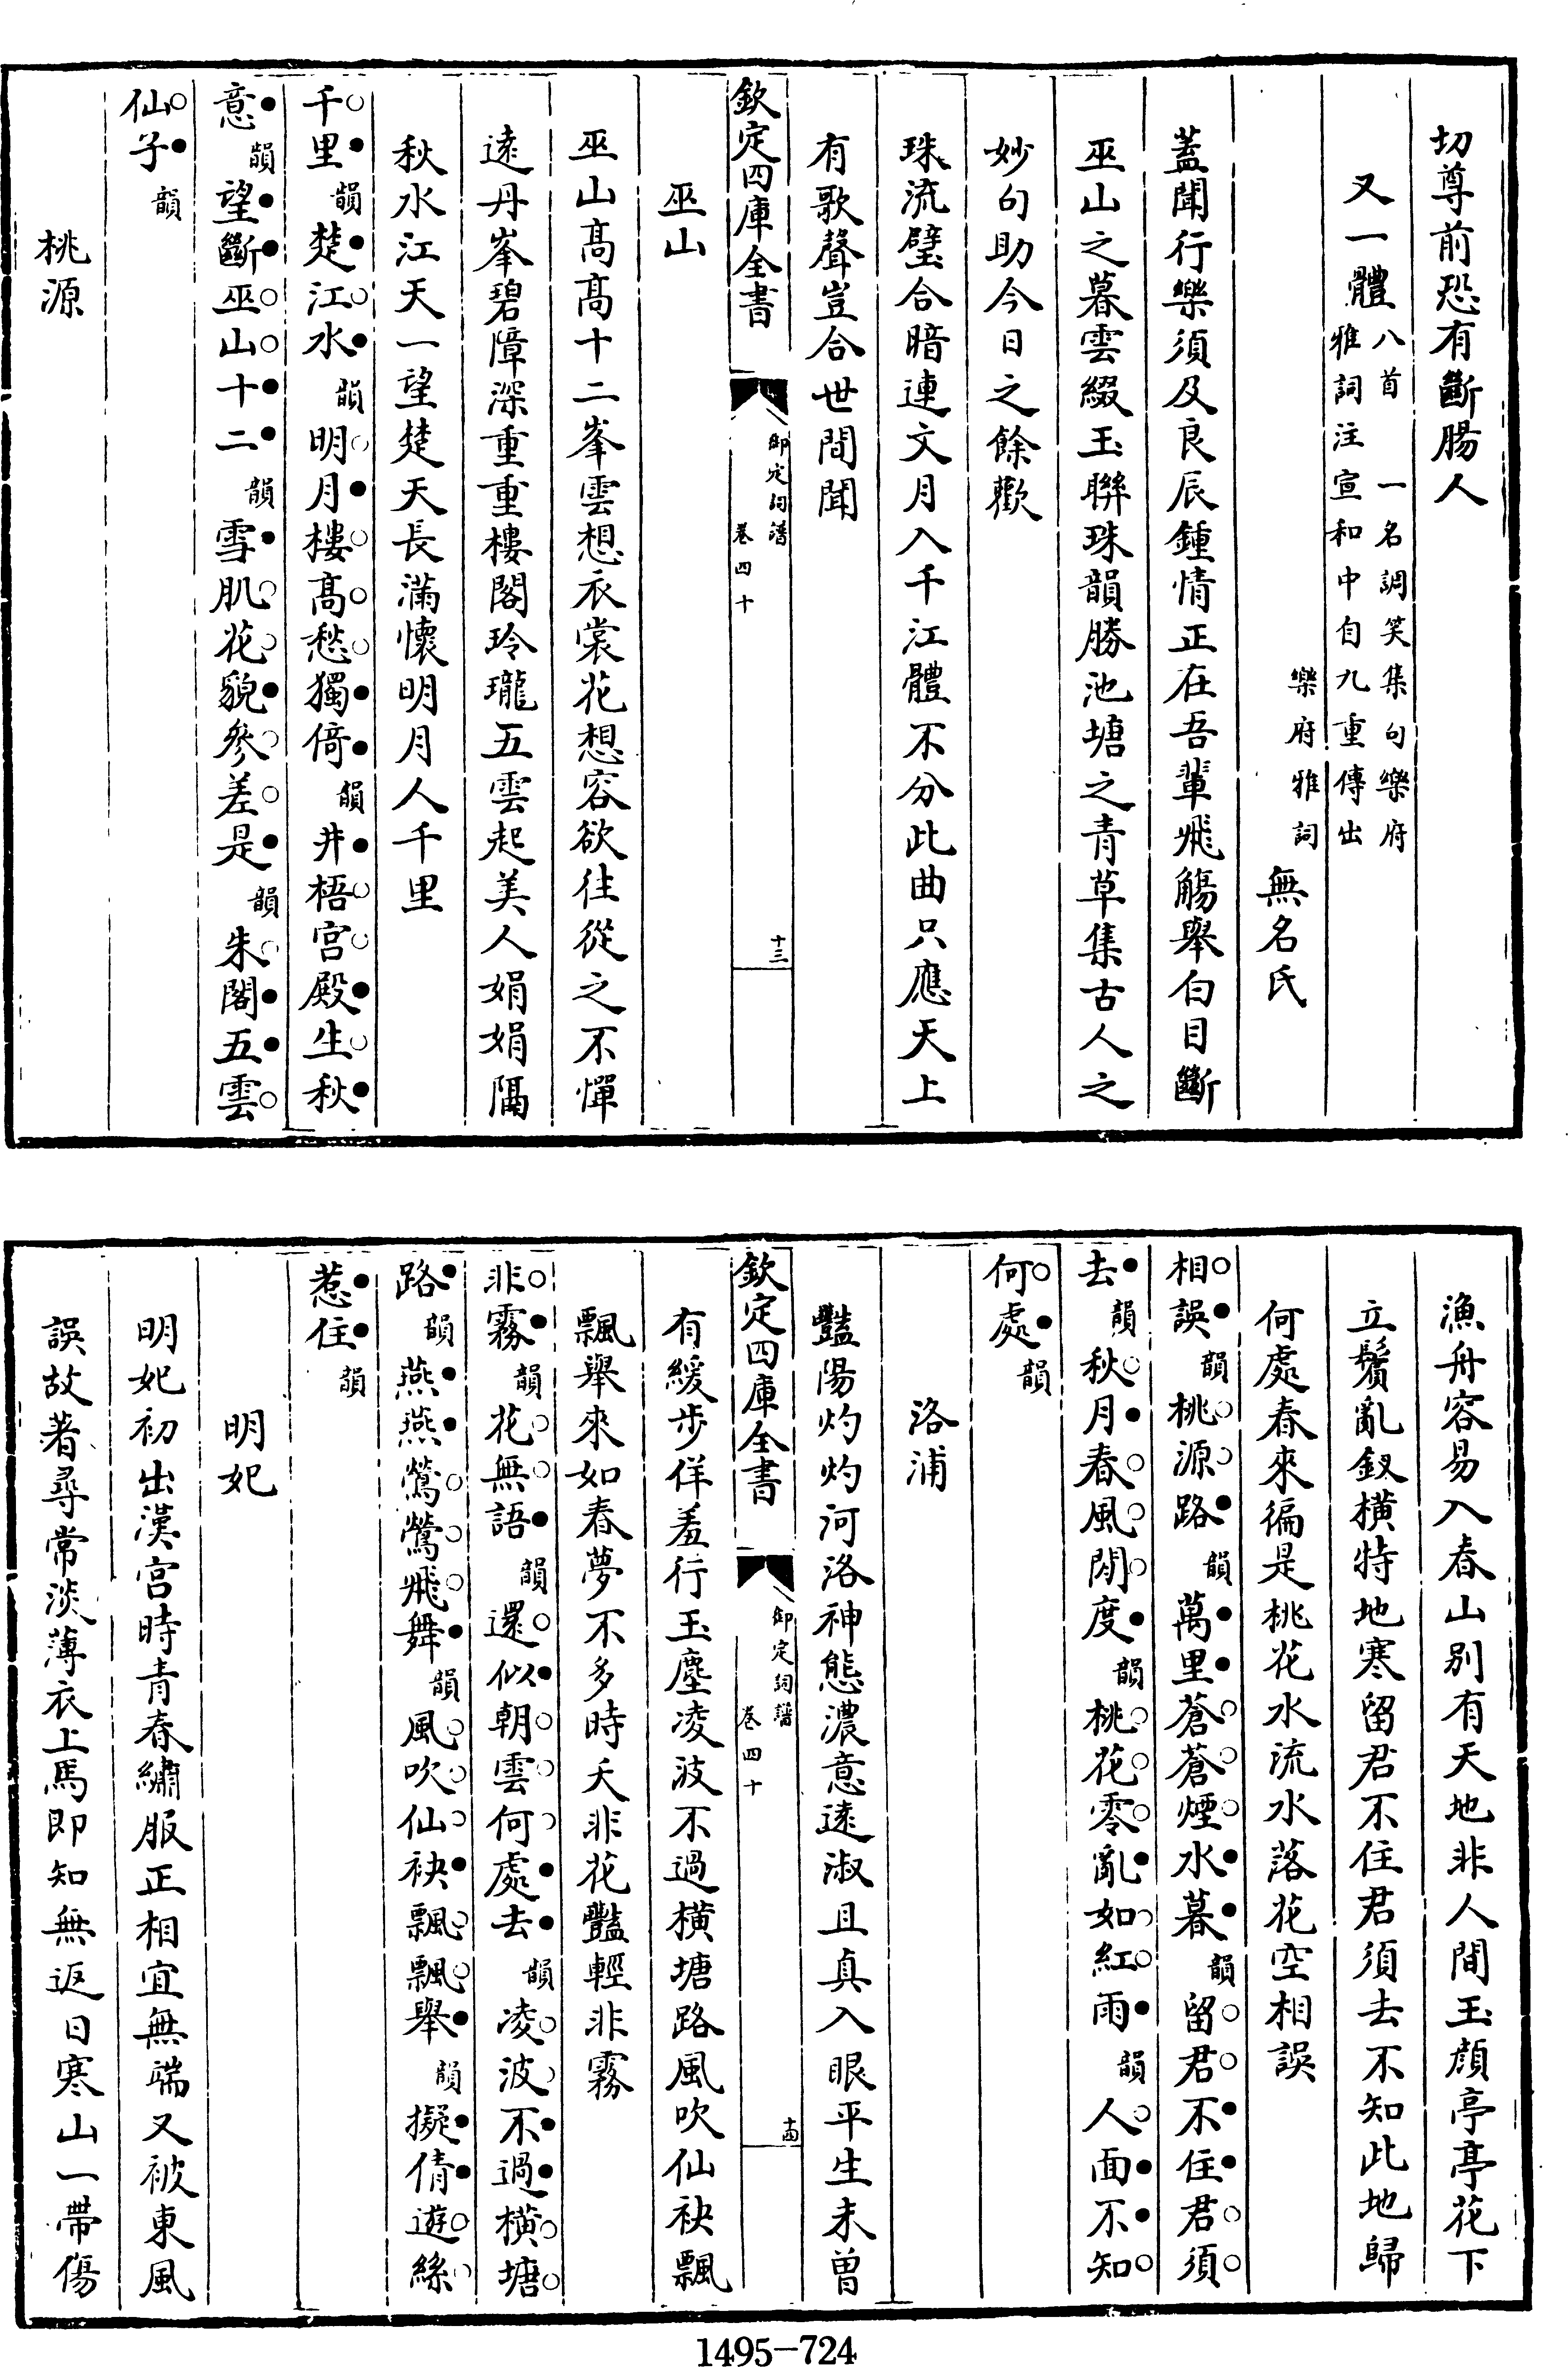 切尊前恐有斷腸人
又一體八首 一名調笑集句樂府
雅詞注宣和中自九重傳出
樂府雅詞 無名氏
蓋聞行樂須及良辰鍾情正在吾輩飛觴舉白目斷
巫山之暮雲綴玉聯珠韻勝池塘之青草集古人之
妙句助今日之餘歡
珠流璧合暗連文月入千江體不分此曲只應天上
有歌聲豈合世間聞
欽定四庫全書 御定詞譜 卷四十 十三
巫山
巫山髙髙十二峯雲想衣裳花想容欲往從之不憚
逺丹峯碧障深重重樓閣玲瓏五雲起美人娟娟隔
秋水江天一望楚天長滿懷明月人千里
千○里●韻楚●江○水●韻明○月●樓○髙○愁○獨●倚●韻井●梧○宫○殿●生○秋●
意●韻望●斷●巫○山○十●二●韻雪●肌○花○貌●參○差○是●韻朱○閣●五●雲○
仙○子●韻
桃源
漁舟容易入春山别有天地非人間玉顔亭亭花下
立鬢亂釵横特地寒留君不住君須去不知此地歸
何處春來徧是桃花水流水落花空相誤
相○誤●韻桃○源○路●韻萬●里●蒼○蒼○煙○水●暮●韻留○君○不●住●君○須○
去●韻秋○月●春○風○閒○度●韻桃○花○零○亂●如○紅○雨●韻人○面●不●知○
何○處●韻
洛浦
豔陽灼灼河洛神態濃意逺淑且真入眼平生未曾
欽定四庫全書 御定詞譜 卷四十 十四
有緩步佯羞行玉塵凌波不過横塘路風吹仙袂飄
飄舉來如春夢不多時夭非花豔輕非霧
非○霧●韻花○無○語●韻還○似●朝○雲○何○處●去●韻凌○波○不●過●横○塘○
路●韻燕●燕●鶯○鶯○飛○舞●韻風○吹○仙○袂●飄○飄○舉●韻擬●倩●遊○絲○
惹●住●韻
明妃
明妃初出漢宫時青春繡服正相宜無端又被東風
誤故著尋常淡薄衣上馬即知無返日寒山一帶傷
1495-724